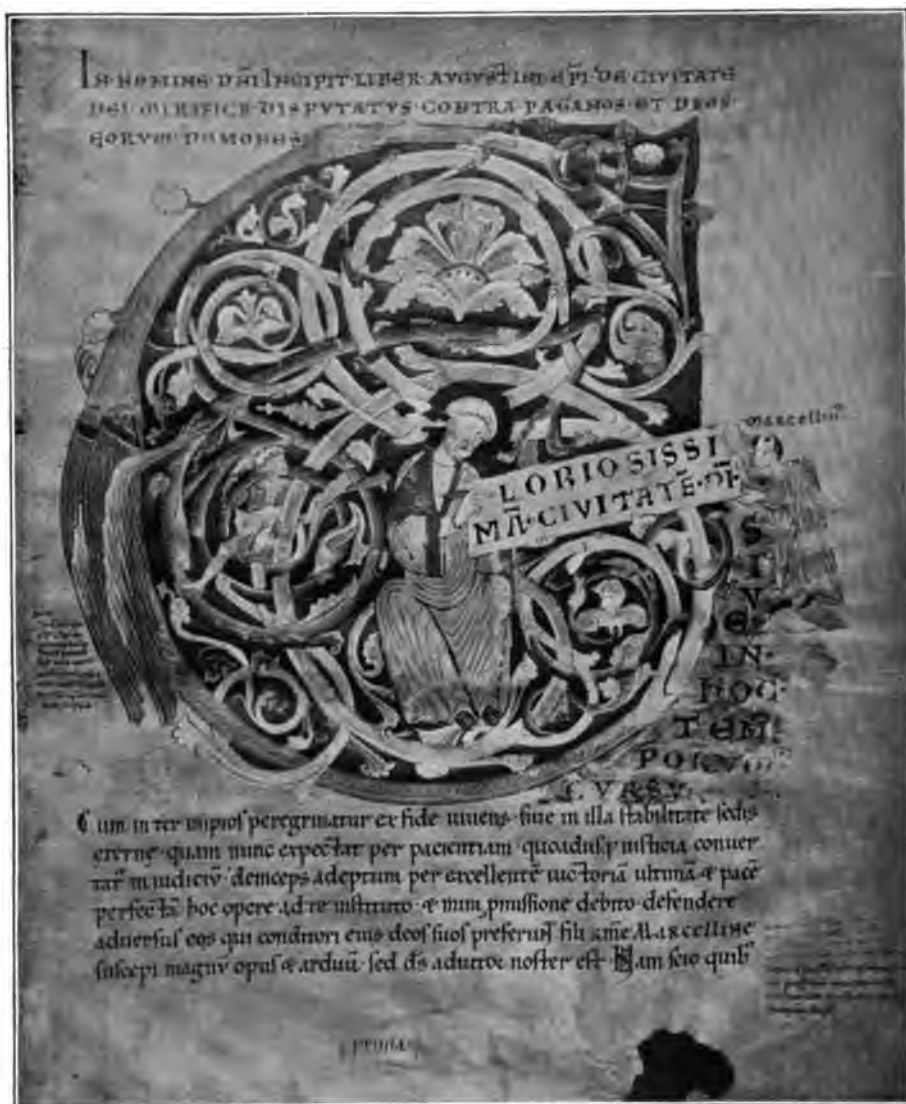 IN NOMINE DN̄I INCIPIT LIBER AVGVSTINI EP̄I DE CIVITATE
DEI MIRIFICE DISPVTATVS CONTRA PAGANOS ET DEOS
EORVM DEMONES
LORIOSISSI
MĀ CIVITATĒ DĪ
Marcellin
S
I
V
E
IN
HOC
TEM
PORVM
CVRSV
Cum inter impios peregrinatur ex fide uiuens siue in illa stabilitate sedis
eternę quam nunc expectat per pacientiam quoadusq; iusticia conuer
tat in iudiciū deinceps adeptum per excellentē uictoriā ultimā & pacē
perfectā hoc opere ad te instituto & mea pmissione debito defendere
aduersus eos qui conditori eius deos suos preferun̄t fili xm̄e MARCELLINE
suscepi magnū opus & arduū sed ds adiutor noster est Nam scio quib